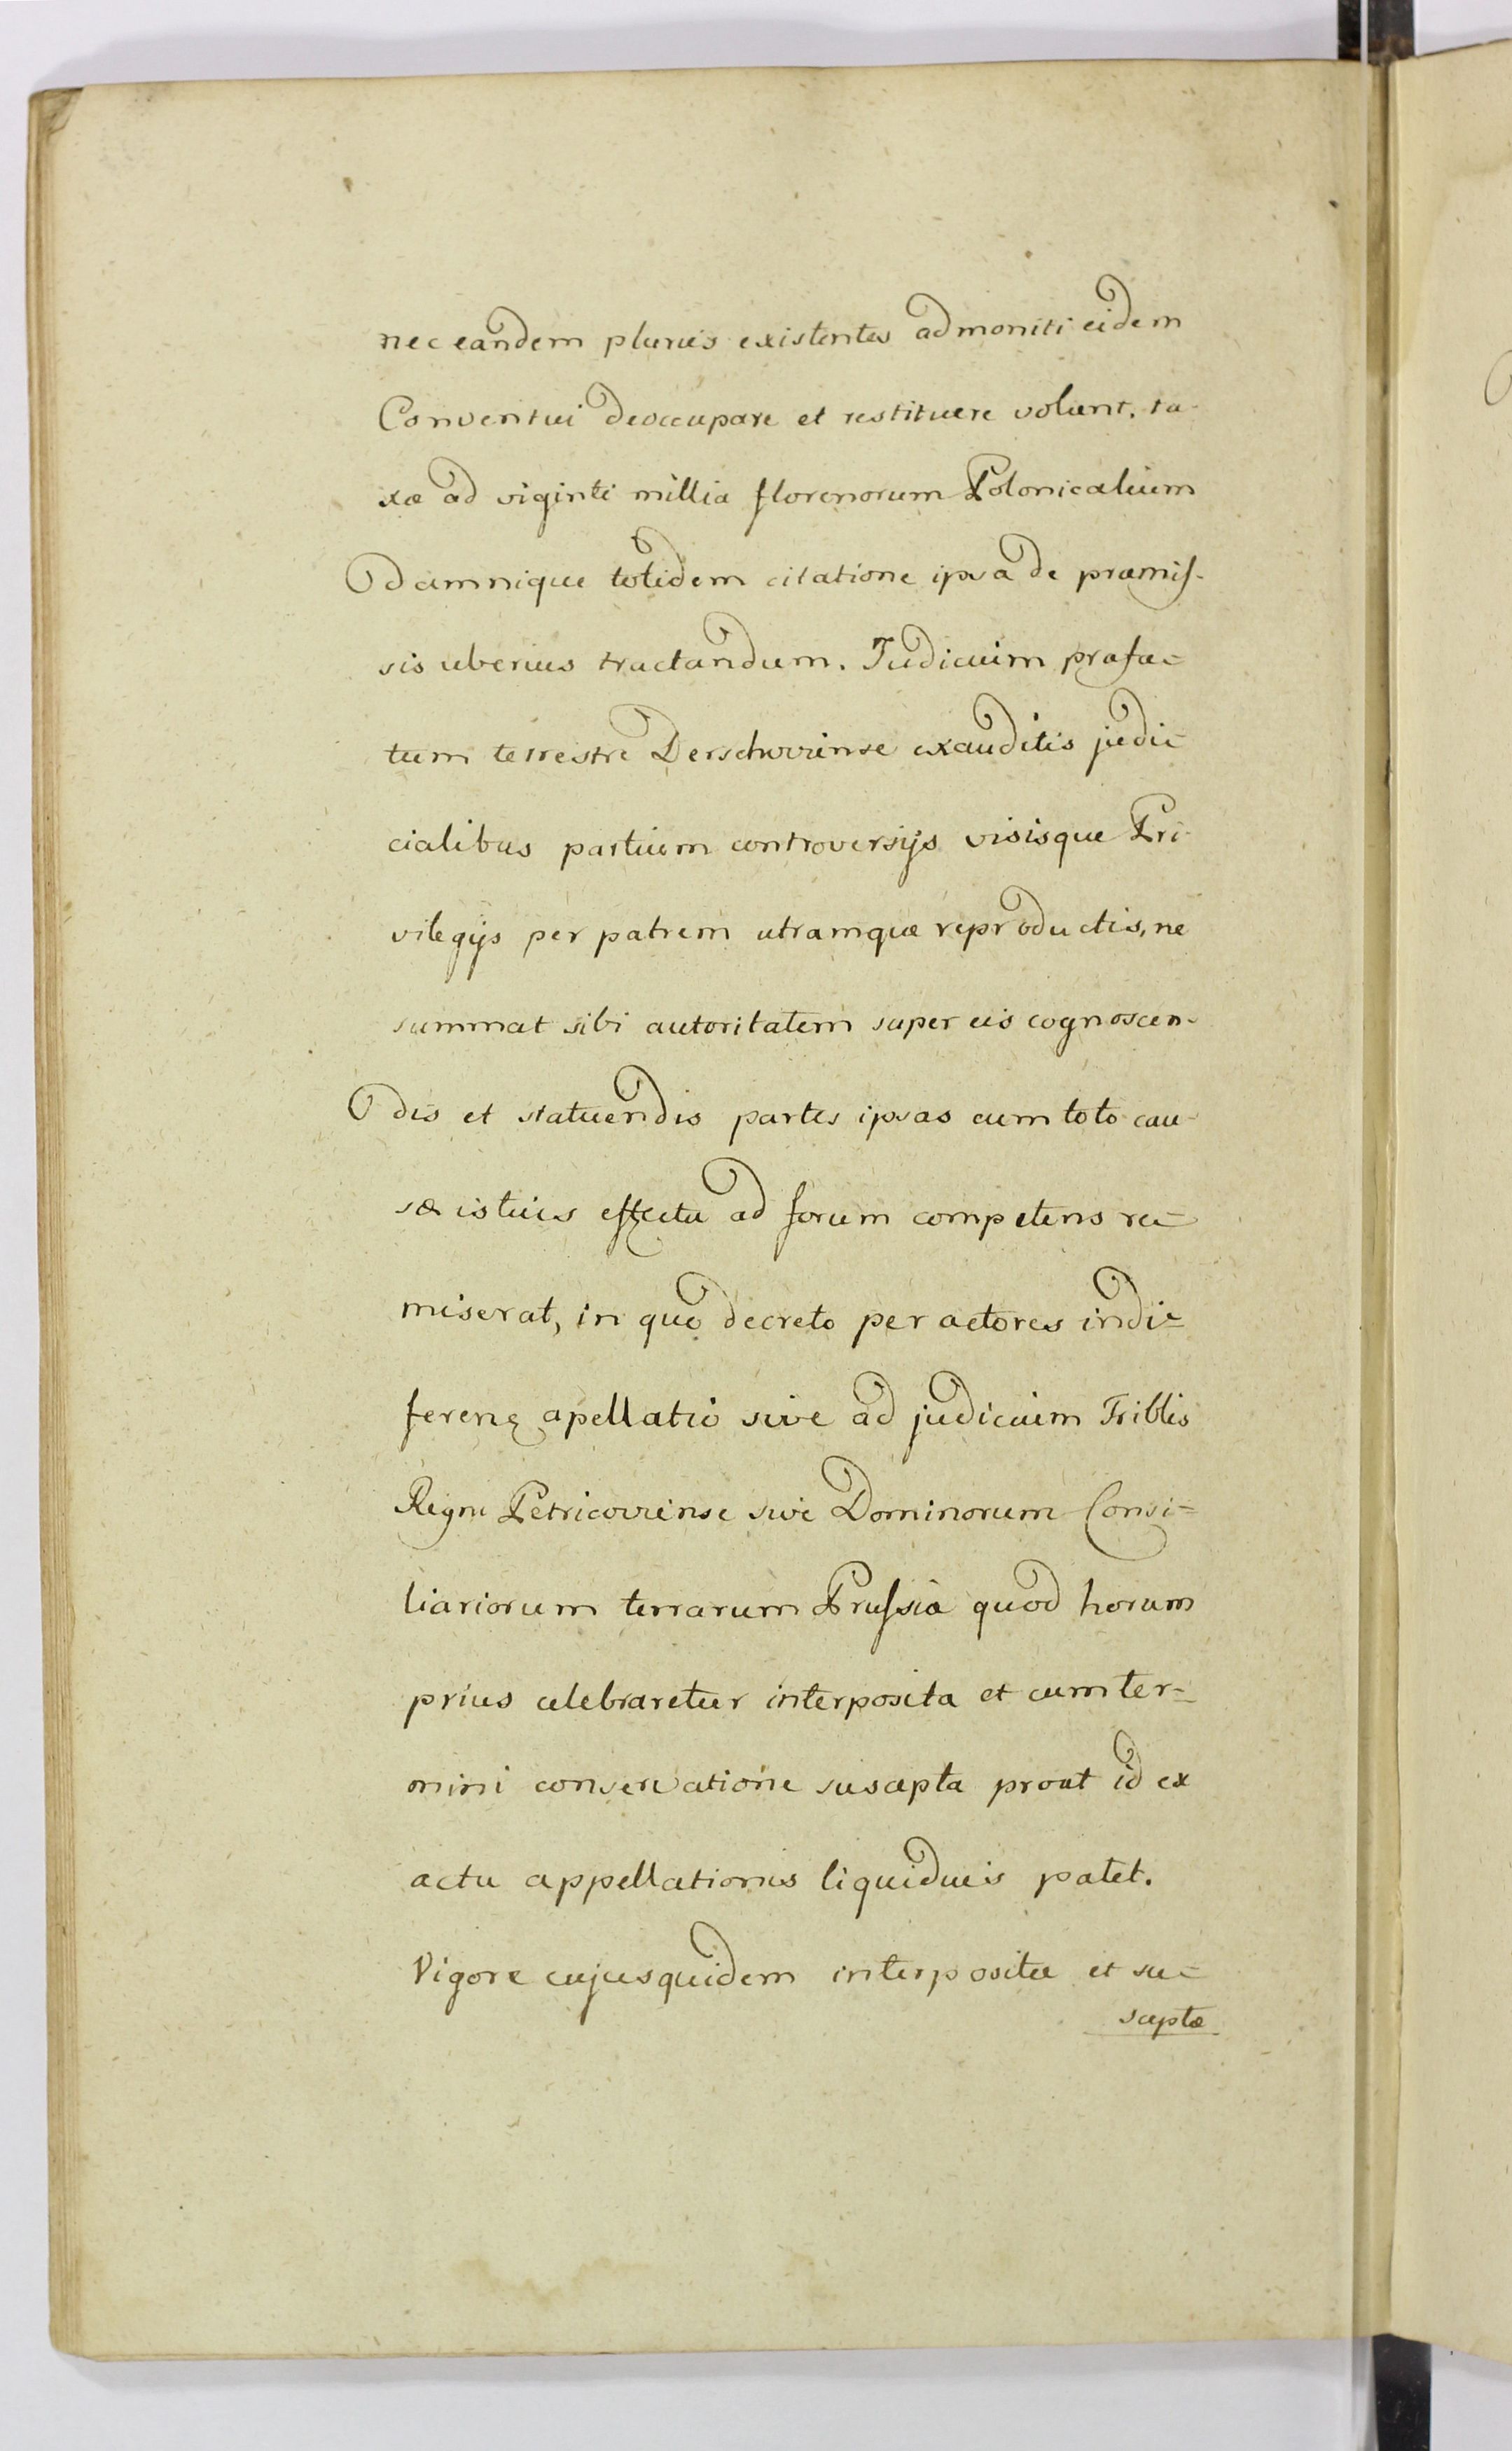 nec eandem pluries existentes admoniti eidem
Conventui deoccupare et restituere volunt. ta-
xæ ad viginti millia florenorum Polonicalium
damnique totidem citatione ipsa de præmis-
sis uberius tractandum. Judicium præfa=
tum terrestre Derschoviense exauditis judi=
cialibus partium controversijs visisque Pri-
vilegijs per patrem utramque reproductis, ne
summat sibi autoritatem super eis cognoscen-
dis et statuendis partes ipsas cum toto cau-
sæ istius effectu ad forum competens re=
miserat, in quo decreto per actores indi=
ferenę apellatio sive ad judicium Triblis
Regni Petricoviense sive Dominorum Consi=
liariorum terrarum Prussiæ quod horum
prius celebraretur interposita et cum ter=
mini conservatione suscepta prout id ex
actu appellationis liquidius patet.
Vigore cujusquidem interpositæ et su=
sceptæ